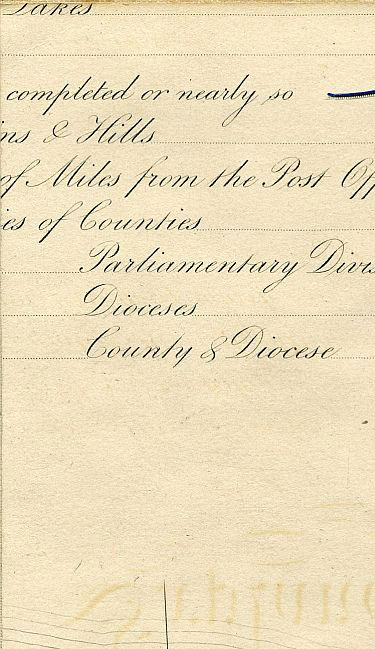 Lakes
completed or nearly so
ns & Hills
of Miles from the Post Off
ies of Counties
Parliamentary Divis
Dioceses
County & Diocese